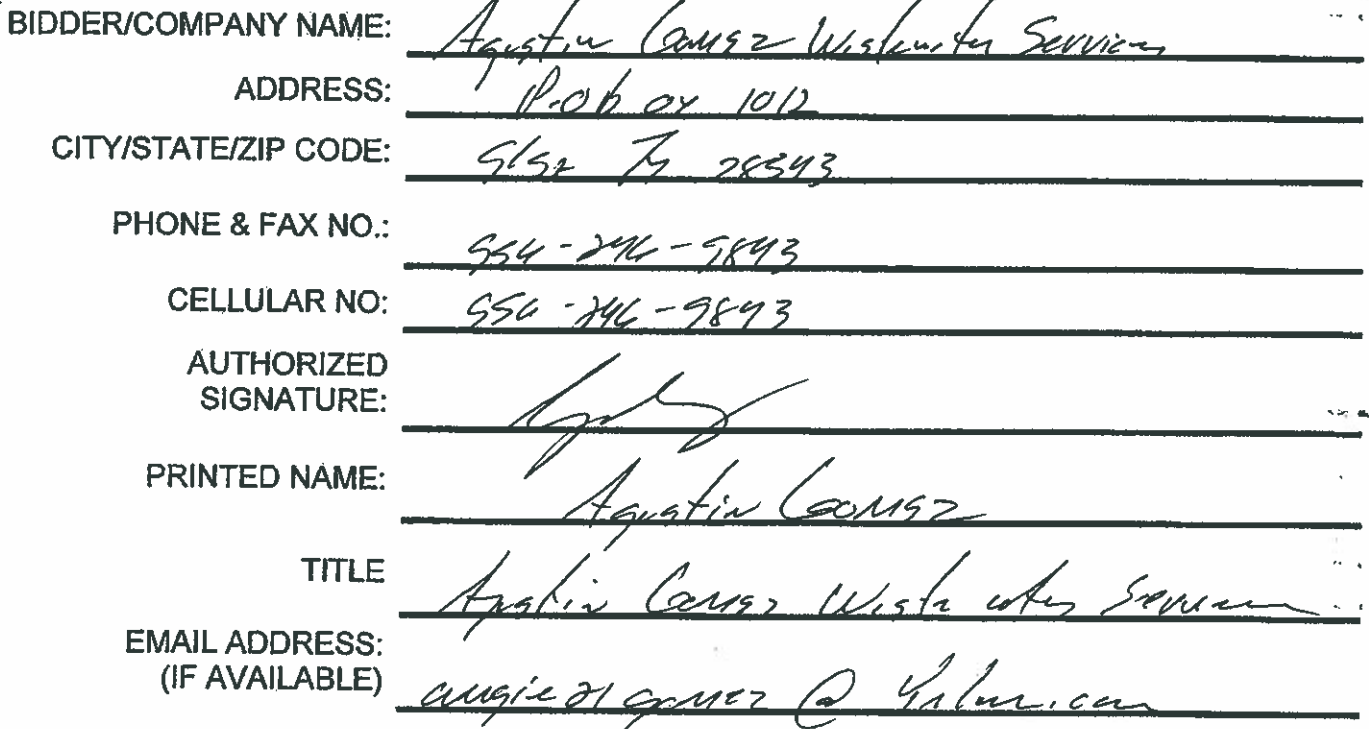 BIDDER/COMPANY NAME: Agustin Gomez Wastewater Services
ADDRESS: P.O box 1012
CITY/STATE/ZIP CODE: Elsa TX 78543
PHONE & FAX NO.: 956-246-9843
CELLULAR NO: 956-246-9843
AUTHORIZED
SIGNATURE:
PRINTED NAME: Agustin Gomez
TITLE Agustin Gomez Waste water Services
EMAIL ADDRESS:
(IF AVAILABLE) augie21gomez@yahoo.com